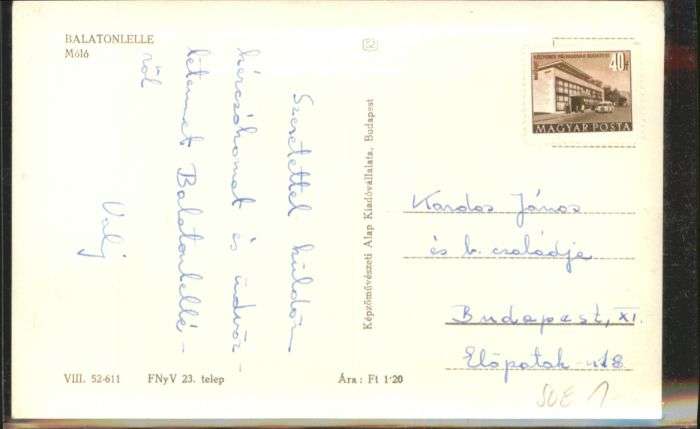 BALATONLELLE
Móló
Szeretettel küldöm
kézcsókomat és üdvöz-
letemet Balatonlellé-
ről
Valy
Képzőművészeti Alap Kiadóvállalata, Budapest
KÖZPONTI PÁLYAUDVAR BUDAPEST
40f
MAGYAR POSTA
Kardos János
és b. családja
Budapest, XI.
Előpatak-u
VIII. 52-611
FNyV 23. telep
Ára: Ft 1·20